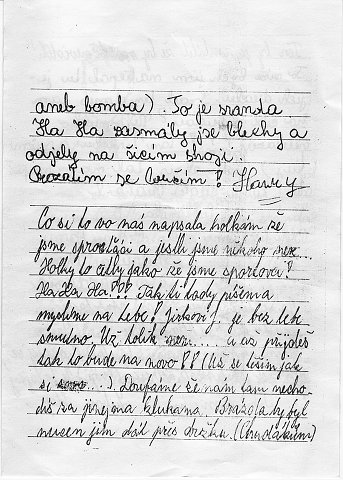 aneb bomba). To je sranda
Ha Ha zasmály jse blechy a
odjely na šicím stroji.
Prozatím se loučím! Harry
Co si to vo nás napsala holkám že
jsme sprosťáci a jestli jsme někoho
Holky to četly jako že jsme sporťovci?
Ha Ha Ha!?? Tak ti tady píšem a
myslíme na tebe! je bez tebe
smutno. Už tolik .... a až přijdeš
tak to bude na novo!! (Už se těším jak
si ...). Doufáme že nám tam necho-
díš za jinejma klukama. Brázda by byl
nucen jim dát přes držku. (Chudákům)